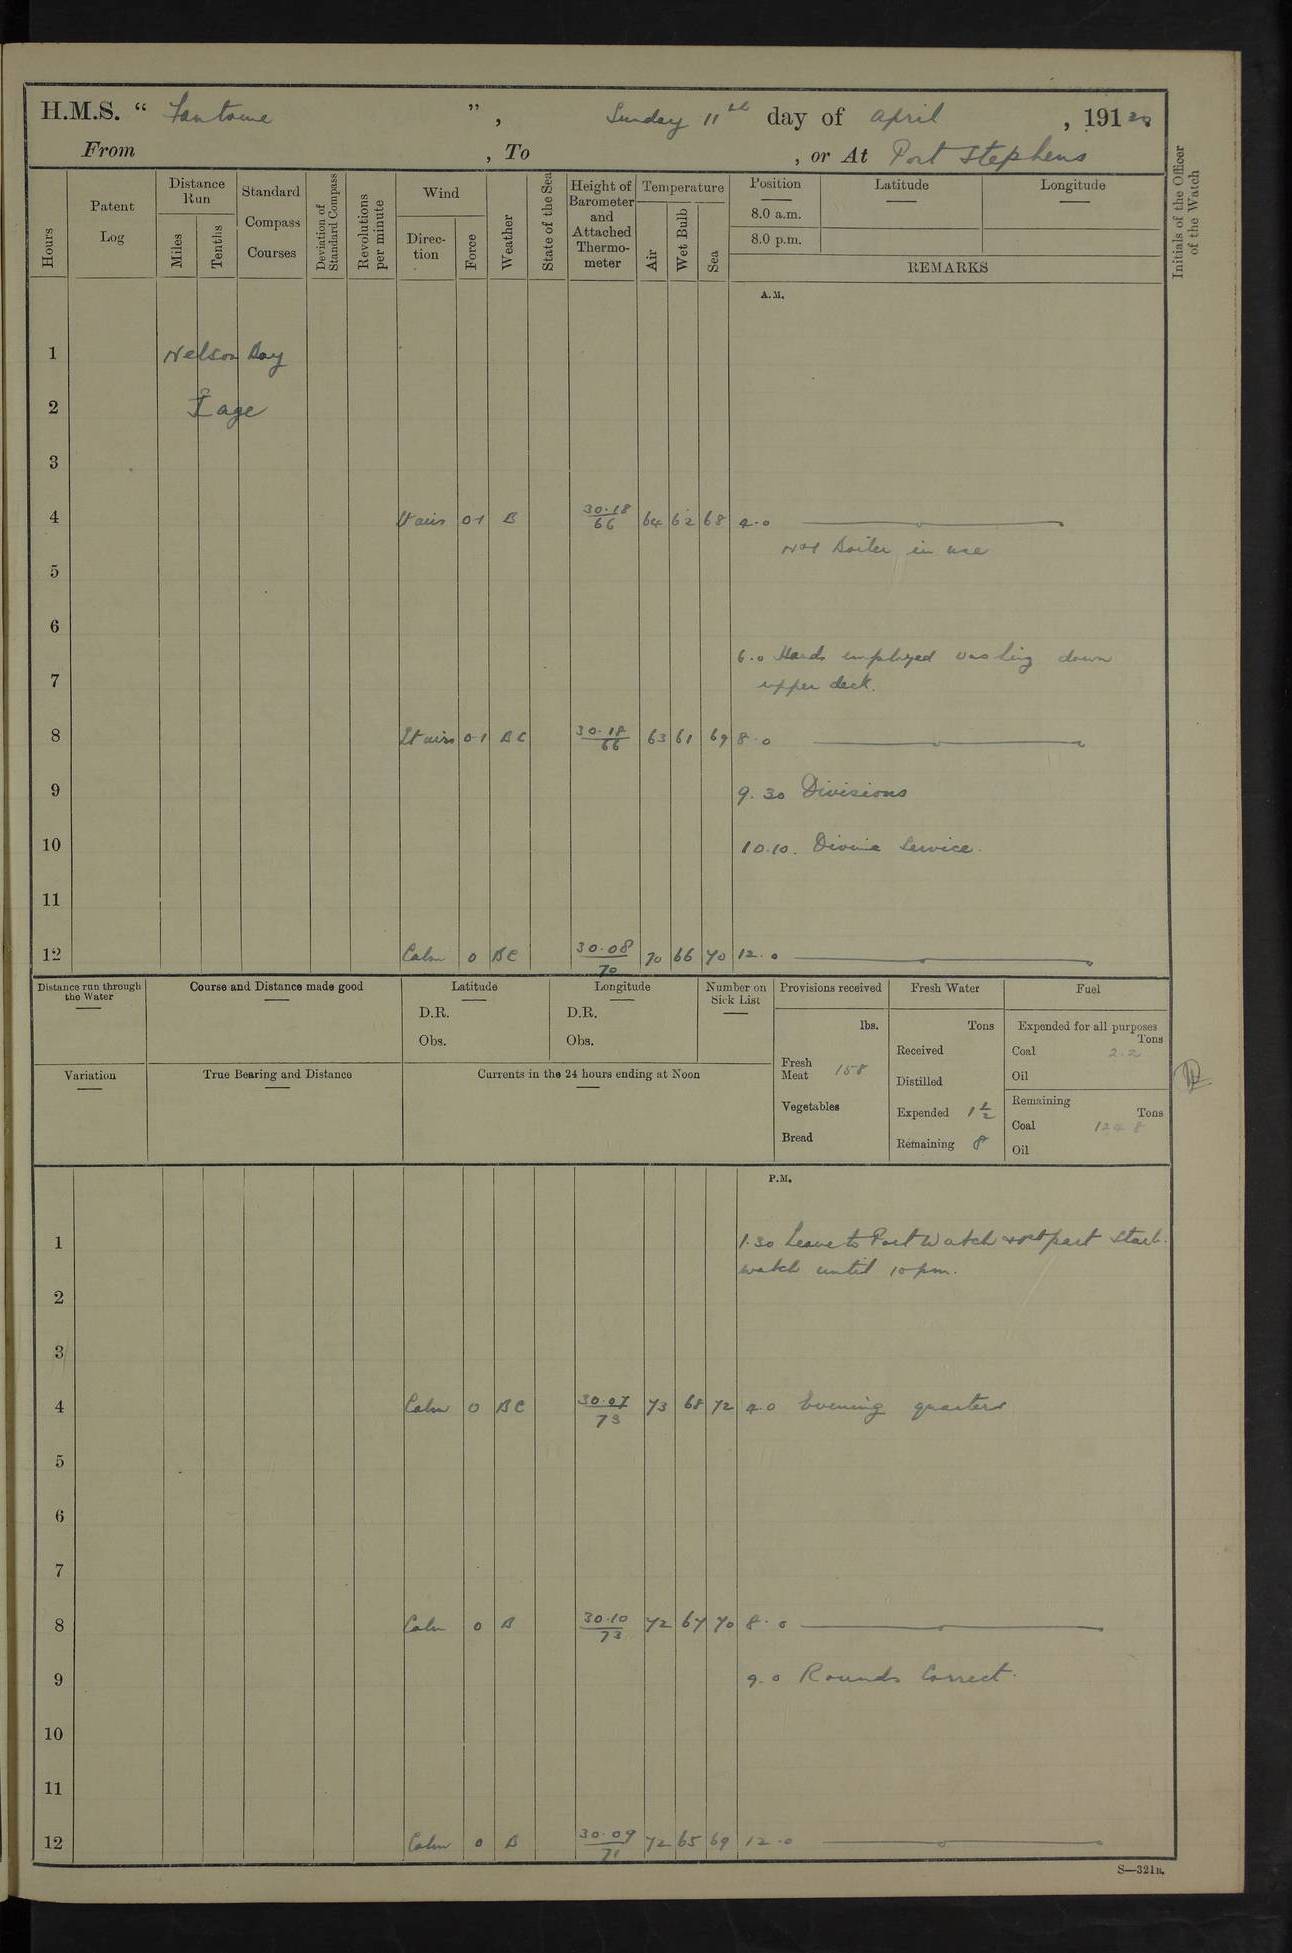 H.M.S. “ Fantome ”, Sunday 11th day of April , 191 20
From , To , or At Port Stephens
Hours
Patent Log
Distance Run
Miles
Tenths
Standard Compass Courses
Deviation of Standard Compass
Revolutions per minute
Wind
Direc- tion
Force
Weather
State of the Sea
Height of Barometer and Attached Thermo- meter
Temperature
Air
Wet Bulb
Sea
Position Latitude Longitude
8.0 a.m.
8.0 p.m.
REMARKS
Initials of the Officer of the Watch
A.M.
1 Nelson Bay
2 age
3
4 Lt airs 0-1 B 30.18/66 64 62 68 4.0
No 1 Boiler in use
5
6
6.0 Hands employed washing down
7 upper deck.
8 Lt airs 0-1 BC 30.18/66 63 61 69 8.0
9 9.30 Divisions
10 10.10. Divine Service.
11
12 Calm 0 BC 30.08/70 70 66 70 12.0
Distance run through the Water
Course and Distance made good
Latitude
D.R.
Obs.
Longitude
D.R.
Obs.
Number on Sick List
Variation
True Bearing and Distance
Currents in the 24 hours ending at Noon
Provisions received
lbs.
Fresh Meat 158
Vegetables
Bread
Fresh Water
Tons
Received
Distilled
Expended 1 1/2
Remaining 8
Fuel
Expended for all purposes
Tons
Coal 2.2
Oil
Remaining
Tons
Coal 124 8
Oil
P.M.
1 1.30 Leave to Port Watch part Starb.
watch until 10 pm.
2
3
4 Calm 0 BC 30.07/73 73 68 72 4.0 Evening quarters
5
6
7
8 Calm 0 B 30.10/73 72 67 70 8.0
9 9.0 Rounds Correct.
10
11
12 Calm 0 B 30.09/71 72 65 69 12.0
S—321B.